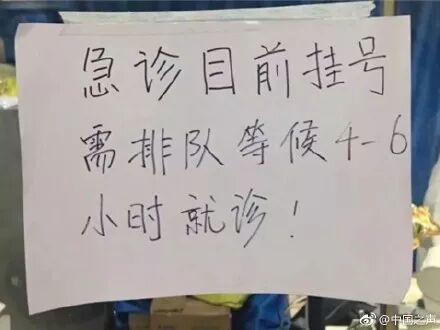 急诊目前挂号
需排队等候4-6
小时就诊！
@中国之声